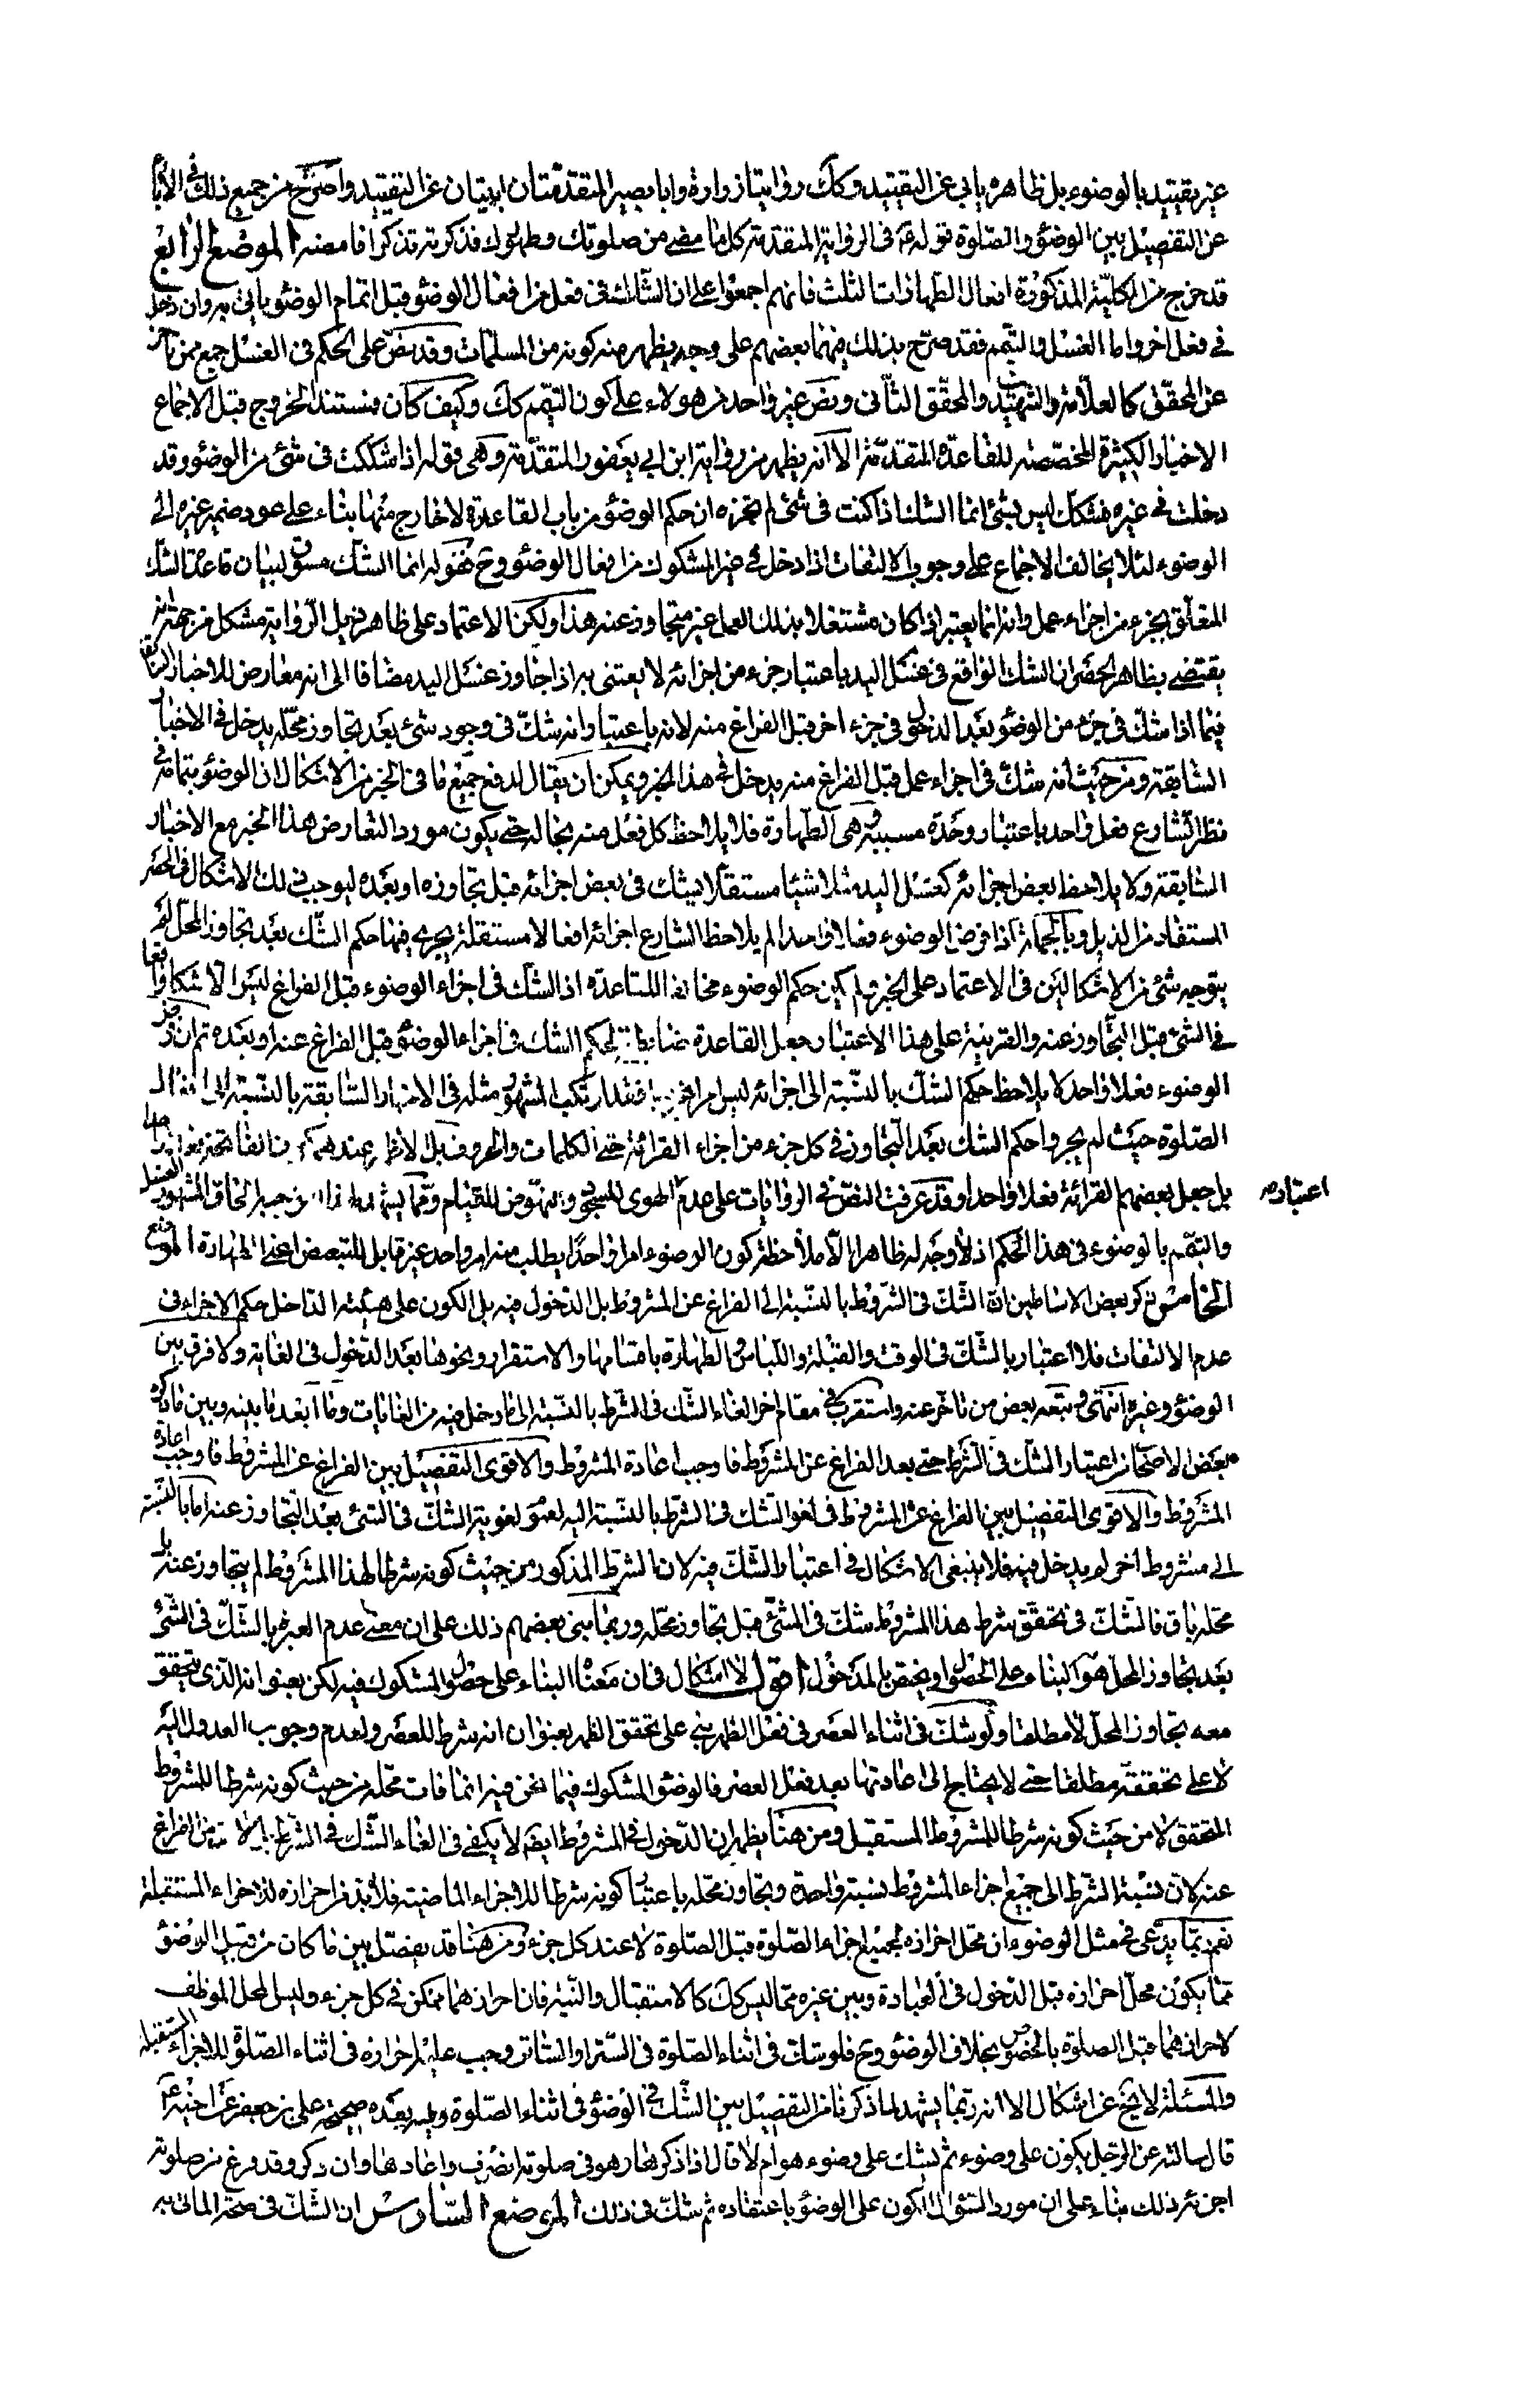 غير تقييد بالوضوء بل ظاهره يابى عن التقييد وكك روايتا زرارة وابا بصير المتقدمتان ابيتان عن التقييد واصرح من جميع ذلك فى الاباء
عن التفصيل بين الوضوء والصلوة قوله ع فى الرواية المتقدمة كل ما مضى من صلوتك وطهورك فذكرته تذكرا فامضه الموضع الرابع
قد خرج من الكلية المذكورة افعال الطهارات الثلث فانهم اجمعوا على ان الشاك فى فعل من افعال الوضوء قبل اتمام الوضوء ياتى به وان دخل
فى فعل اخر واما الغسل والتيمم فقد صرح بذلك فيهما بعضهم على وجه يظهر منه كونه من المسلمات وقد نص على الحكم فى الغسل جمع ممن تاخر
عن المحقق كالعلامة والشهيدين والمحقق الثانى ونص غير واحد من هؤلاء على كون التيمم كك وكيف كان فمستند الخروج قبل الاجماع
الاخبار الكثيرة المخصصة للقاعدة المتقدمة الا انه يظهر من رواية ابن ابى يعفور المتقدمة وهى قوله اذا شككت فى شئ من الوضوء وقد
دخلت فى غيره فشكك ليس بشئ انما الشك اذا كنت فى شئ لم تجزه ان حكم الوضوء من باب القاعدة لا خارج منها بناء على عود ضمير غيره الى
الوضوء لئلا يخالف الاجماع على وجوب الالتفات اذا دخل فى غير المشكوك من افعال الوضوء وح فقوله انما الشك مسوق لبيان قاعدة الشك
المتعلق بجزء من اجزاء عمل وانه انما يعتبر اذا كان مشتغلا بذلك العمل غير متجاوز عنه هذا ولكن الاعتماد على ظاهر ذيل الرواية مشكل من جهة انه
يقتضى بظاهر الحصر ان الشك الواقع فى غسل اليد باعتبار جزء من اجزائه لا يعتنى به اذا جاوز غسل اليد مضافا الى انه معارض للاخبار السابقة
فيما اذا شك فى جزء من الوضوء بعد الدخول فى جزء اخر قبل الفراغ منه لانه باعتبار انه شك فى وجود شئ بعد تجاوز محله يدخل فى الاخبار
السابقة ومن حيث انه شك فى اجزاء عمل قبل الفراغ منه يدخل فى هذا الخبر ويمكن ان يقال لدفع جميع ما فى الخبر من الاشكال ان الوضوء بتمامه فى
نظر الشارع فعل واحد باعتبار وحدة مسببه وهى الطهارة فلا يلاحظ كل فعل منه بحاله حتى يكون مورد التعارض هذا الخبر مع الاخبار
السابقة ولا يلاحظ بعض اجزائه كغسل اليد مثلا شيئا مستقلا يشك فى بعض اجزائه قبل تجاوزه او بعده ليوجب ذلك الاشكال فى الحصر
المستفاد من الذيل وبالجملة اذا فرض الوضوء فعلا واحدا لم يلاحظ الشارع اجزائه افعالا مستقلة يجرى فيها حكم الشك بعد تجاوز المحل لم
يتوجه شئ من الاشكالين فى الاعتماد على الخبر ولم يكن حكم الوضوء مخالفا للقاعدة اذ الشك فى اجزاء الوضوء قبل الفراغ ليس الا شكا واقعا
فى الشئ قبل التجاوز عنه والقرينة على هذا الاعتبار جعل القاعدة ضابطة لحكم الشك فى اجزاء الوضوء قبل الفراغ عنه او بعده ثم ان فرض
الوضوء فعلا واحدا لا يلاحظ حكم الشك بالنسبة الى اجزائه ليس امرا غريبا فقد ارتكب المشهور مثله فى الاخبار السابقة بالنسبة الى افعال
الصلوة حيث لم يجروا حكم الشك بعد التجاوز فى كل جزء من اجزاء القرائة حتى الكلمات والحروف بل الاظهر عندهم كون الفاتحة فعلا واحدا
بل جعل بعضهم القرائة فعلا واحدا وقد عرفت النص فى الروايات على عدم اعتبار الهوى للسجود والنهوض للقيام ومما يشهد لهذا التوجيه الحاق المشهور الغسل
والتيمم بالوضوء فى هذا الحكم اذ لا وجه له ظاهرا الا ملاحظة كون الوضوء امرا واحدا يطلب منه امر واحد غير قابل للتبعيض اعنى الطهارة الموضع
الخامس ذكر بعض الاساطين ان الشك فى الشروط بالنسبة الى الفراغ عن المشروط بل الدخول فيه بل الكون على هيئة الداخل حكم الاجزاء فى
عدم الالتفات فلا اعتبار بالشك فى الوقت والقبلة واللباس والطهارة باقسامها والاستقرار ونحوها بعد الدخول فى الغاية ولا فرق بين
الوضوء وغيره انتهى وتبعه بعض من تاخر عنه واستقرب فى مقام اخر الغاء الشك فى الشرط بالنسبة الى ما دخل فيه من الغايات وما ابعد ما بينه وبين ما ذكره
بعض الاصحاب من اعتبار الشك فى الشرط حتى بعد الفراغ عن المشروط فاوجب اعادة المشروط والاقوى التفصيل بين الفراغ عن المشروط فاوجب اعادة
المشروط والاقوى التفصيل بين الفراغ عن المشروط فى لغو الشك فى الشرط بالنسبة اليه لعموم لغوية الشك فى الشئ بعد التجاوز عنه اما بالنسبة
الى مشروط اخر لم يدخل فيه فلا ينبغى الاشكال فى اعتبار الشك فيه لان الشرط المذكور من حيث كونه شرطا لهذا المشروط لم يتجاوز عنه بل
محله باق فالشك فى تحقق شرط هذا المشروط شك فى الشئ قبل تجاوز محله وربما بنى بعضهم ذلك على ان معنى عدم العبرة بالشك فى الشئ
بعد تجاوز المحل هو البناء على الحصول او يختص بالمدخول اقول لا اشكال فى ان معناه البناء على حصول المشكوك فيه لكن بعنوانه الذى يتحقق
معه تجاوز المحل لا مطلقا ولو شك فى اثناء العصر فى فعل الظهر بنى على تحقق الظهر بعنوان انه شرط للعصر ولعدم وجوب العدول اليه
لا على تحققه مطلقا حتى لا يحتاج الى اعادتها بعد فعل العصر فالوضوء المشكوك فيما نحن فيه انما فات محله من حيث كونه شرطا للمشروط
المتحقق لا من حيث كونه شرطا للمشروط المستقبل ومن هنا يظهر ان الدخول فى المشروط ايضا لا يكفى فى الغاء الشك فى الشرط بل لا بد من الفراغ
عنه لان نسبة الشرط الى جميع اجزاء المشروط نسبة واحدة وتجاوز محله باعتبار كونه شرطا للاجزاء الماضية فلا بد من احرازه للاجزاء المستقبلة
نعم ربما يدعى فى مثل الوضوء ان محل احرازه لجميع اجزاء الصلوة قبل الصلوة لا عند كل جزء ومن هنا قد يفصل بين ما كان من قبيل الوضوء
مما يكون محل احرازه قبل الدخول فى العبادة وبين غيره مما ليس كك كالاستقبال والنية فان احرازهما ممكن فى كل جزء وليس المحل الموظف
لاحرازهما قبل الصلوة بالخصوص بخلاف الوضوء وح فلو شك فى اثناء الصلوة فى الستر او الساتر وجب عليه احرازه فى اثناء الصلوة للاجزاء المستقبلة
والمسئلة لا تخ عن اشكال الا انه ربما يشهد لما ذكرنا من التفصيل بين الشك فى الوضوء فى اثناء الصلوة وفيه بعده صحيحة على بن جعفر عن اخيه ع
قال سالته عن الرجل يكون على وضوء ثم يشك على وضوء هو ام لا قال اذا ذكرها وهو فى صلوته انصرف واعادها وان ذكر وقد فرغ من صلوته
اجزئه ذلك بناء على ان مورد السؤال الكون على الوضوء باعتقاده ثم شك فى ذلك الموضع السادس ان الشك فى صحة الماتى به
اعتباره